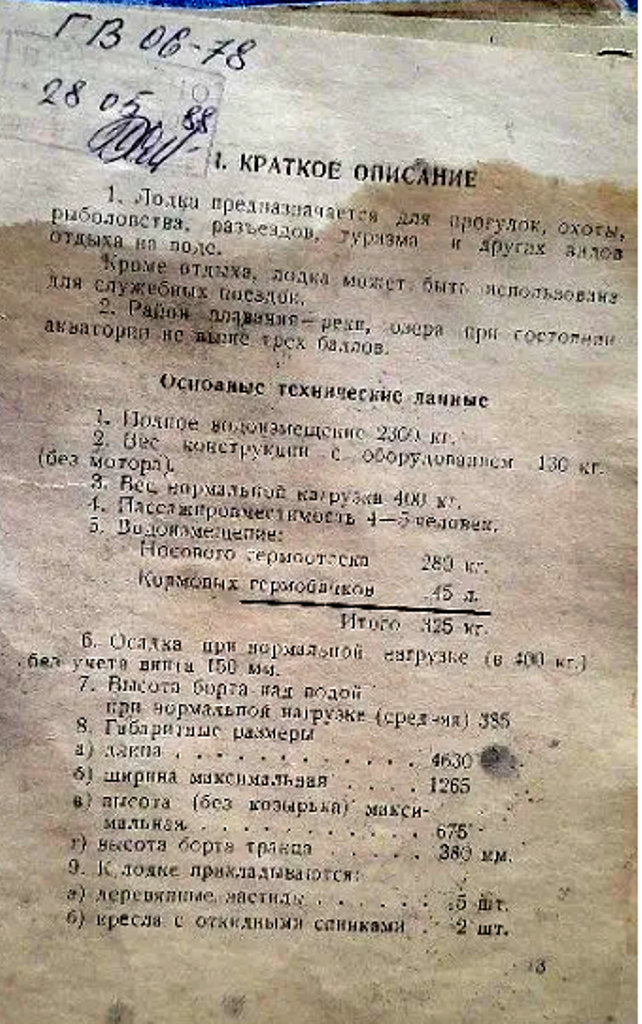 ГВ 06-78
28 05 88
1. КРАТКОЕ ОПИСАНИЕ
1. Лодка предназначается для прогулок, охоты,
рыболовства, разъездов, туризма и других видов
отдыха на воде.
Кроме отдыха, лодка может быть использована
для служебных поездок.
2. Район плавания—реки, озера при состоянии
акватории не выше трех баллов.
Основные технические данные
1. Полное водоизмещение 2300 кг.
2. Вес конструкции с оборудованием 130 кг.
(без мотора).
3. Вес нормальной нагрузки 400 кг.
4. Пассажировместимость 4—5 человек.
5. Водоизмещение:
Носового гермоотсека 280 кг.
Кормовых гермобачков 45 л.
Итого 325 кг.
6. Осадка при нормальной нагрузке (в 400 кг.)
без учета винта 150 мм.
7. Высота борта над водой
при нормальной нагрузке (средняя) 385
8. Габаритные размеры
а) длина . . . . . . . . . . . . 4630
б) ширина максимальная . . . . 1265
в) высота (без козырька) макси-
мальная. . . . . . . . . . . 675
г) высота борта транца . . . . . 380 мм.
9. К лодке прикладываются:
а) деревянные настилы . . . . . . 5 шт.
б) кресла с откидными спинками . 2 шт.
3